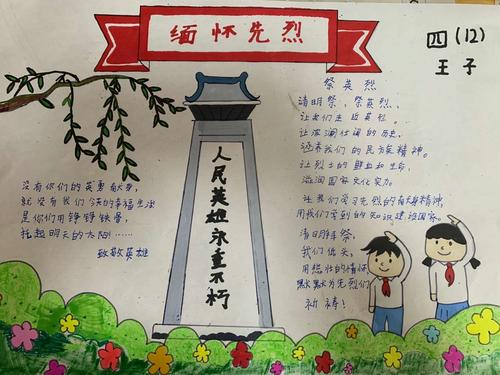 缅怀先烈
四(12)
王子
人民英雄永垂不朽
没有你们的英勇献身,
就没有我们今天的幸福生活
是你们用铮铮铁骨,
托起明天的太阳……
致敬英雄
祭英烈
清明祭,祭英烈、
让我们走近英烈。
让波澜壮阔的历史,
涵养我们的民族精神。
让烈士的鲜血和生命,
滋润国家文化实力。
让我们学习先烈的有献精神,
用我们学到的知识建设国家。
清明时祭,
我们低头,
用悲壮的情怀
默默为先烈们
祈祷!